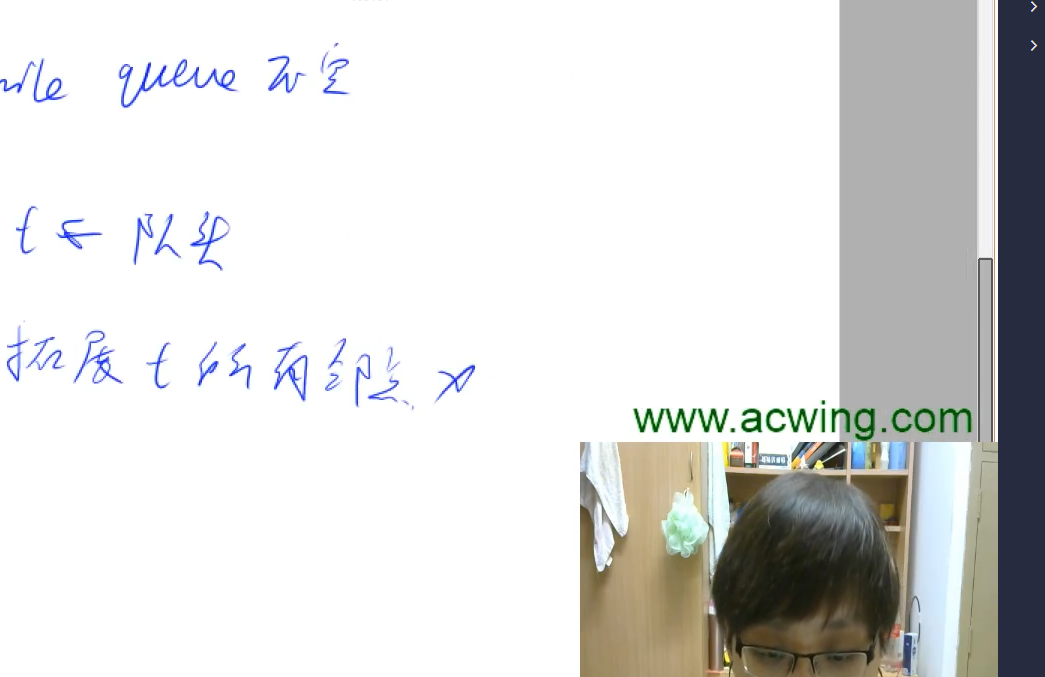 while queue 不空
t ← 队头
拓展 t 的所有邻点 x
www.acwing.com